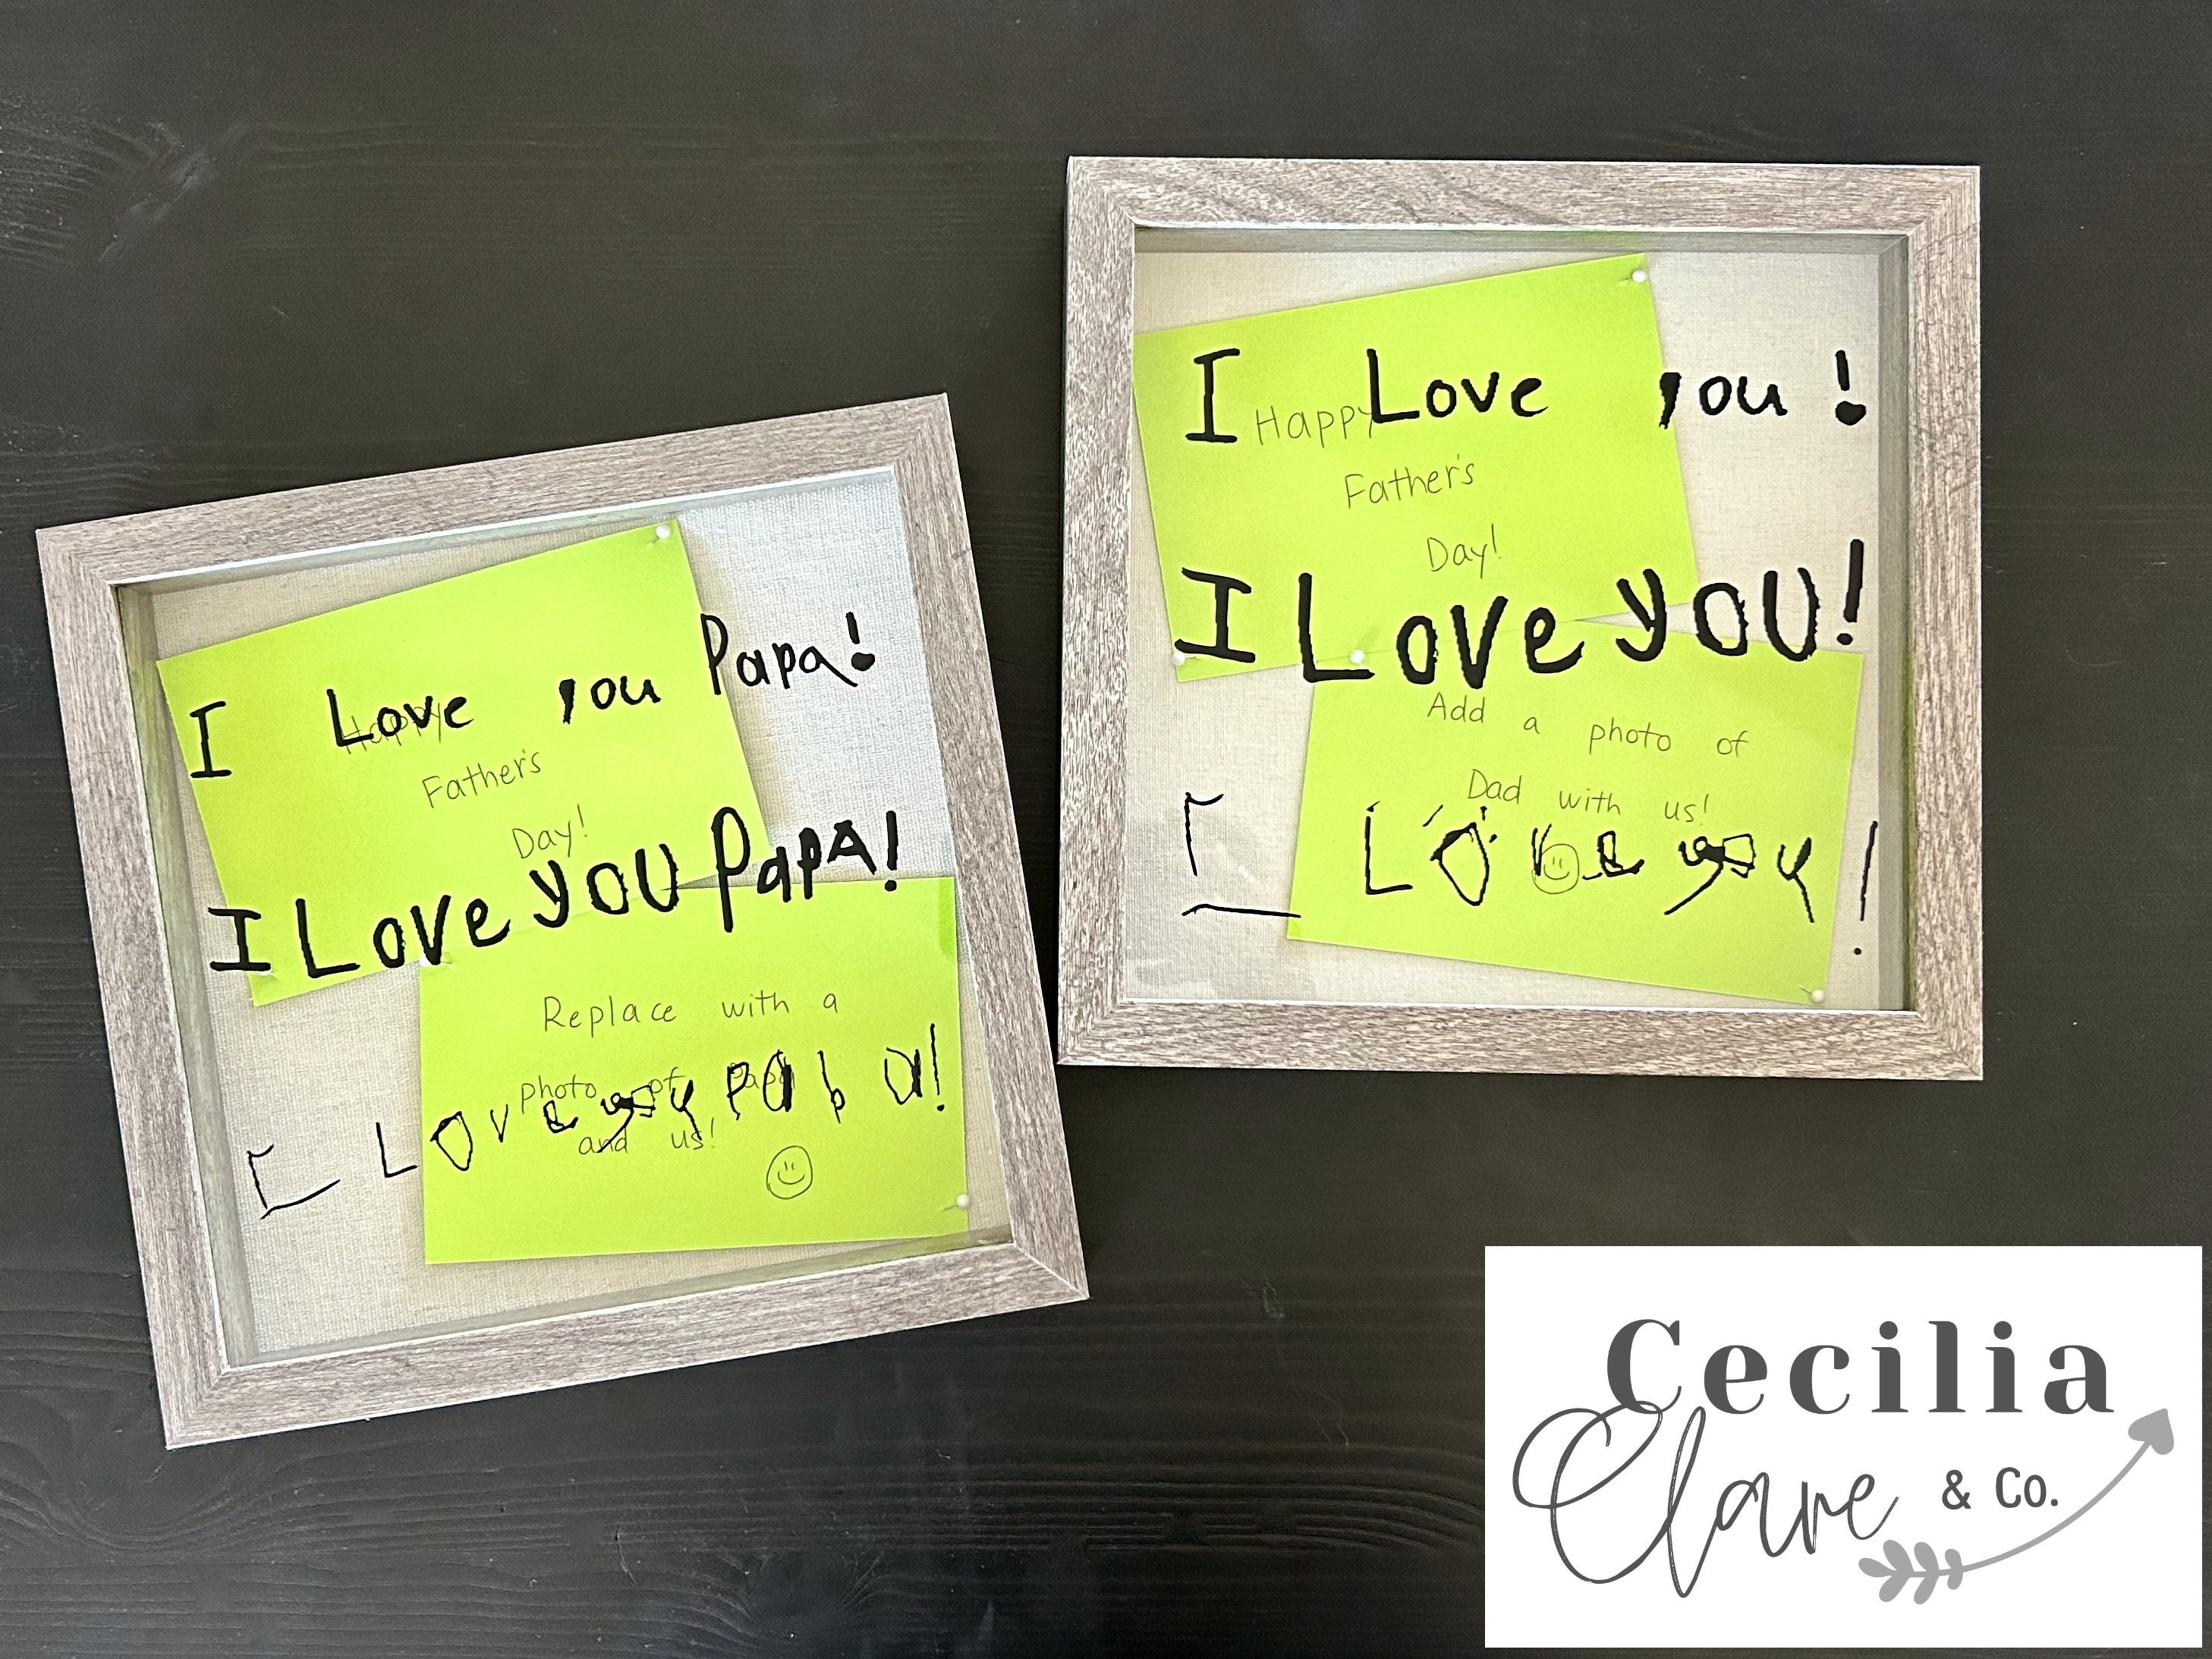 I Love you Papa!
Happy
Father's
Day!
I Love YOU PapA!
Replace with a
photo of Papa
and us!
I Love you papa!
I Love you!
Happy
Father's
Day!
I Love YOU!
Add a photo of
Dad with us!
I Love you!
Cecilia
Clare & Co.